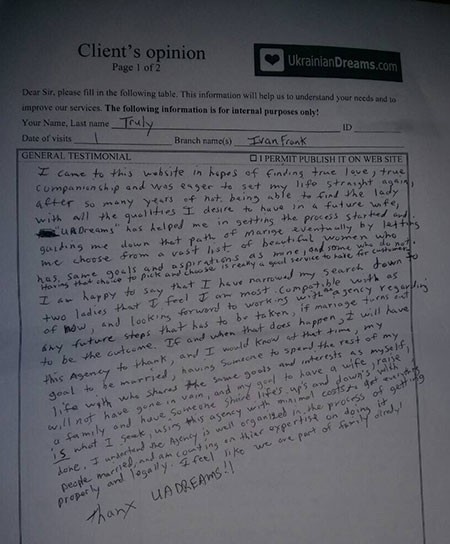 Client's opinion
Page 1 of 2
UkrainianDreams.com
Dear Sir, please fill in the following table. This information will help us to understand your needs and to
improve our services. The following information is for internal purposes only!
Your Name, Last name Truly ID
Date of visits 1 Branch name(s) Ivan Frank
GENERAL TESTIMONIAL I PERMIT PUBLISH IT ON WEB SITE
I came to this website in hopes of finding true love, true
companionship and was eager to set my life straight again,
after so many years of not being able to find the lady
with all the qualities I desire to have in a future wife,
"UADreams" has helped me in getting the process started and
guiding me down that path of marige eventually by letting
me choose from a vast list of beautiful women who
has same goals and aspirations as mine, and some who do not.
Having that choice to pick and choose is really a good service to have for customers.
I am happy to say that I have narrowed my search down to
two ladies that I feel I am most compatible with as
of now, and looking forward to working with agency regarding
any future steps that has to be taken, if mariage turns out
to be the outcome. If and when that does happen, I will have
this Agency to thank, and I would know at that time, my
goal to be married, having someone to spend the rest of my
life with who shares the same goals and interests as myself,
will not have gone in vain, and my goal to have a wife, raise
a family and have someone share lifes up's and down's with
is what I seek, using this agency with minimal costs to get everything
done. I understand the Agency is well organized in the process of getting
people married, and am counting on thier expertise on doing it
properly and legally. I feel like we are part of family alrdy!
Thanx UADREAMS!!